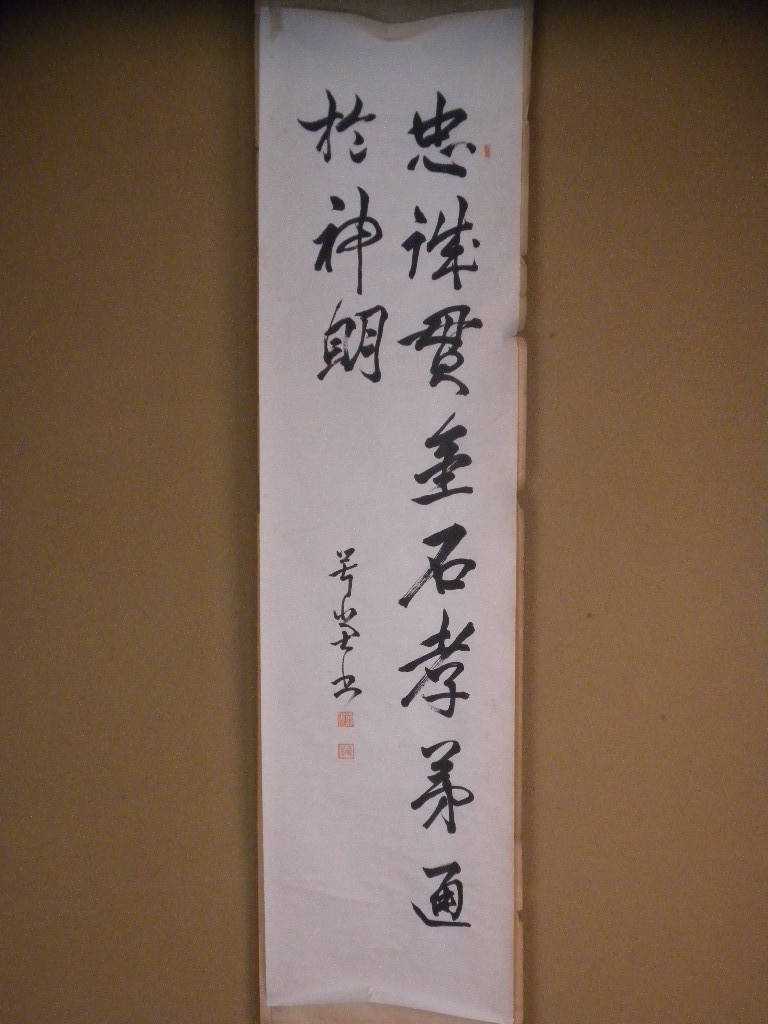 忠誠貫金石孝弟通
於神明